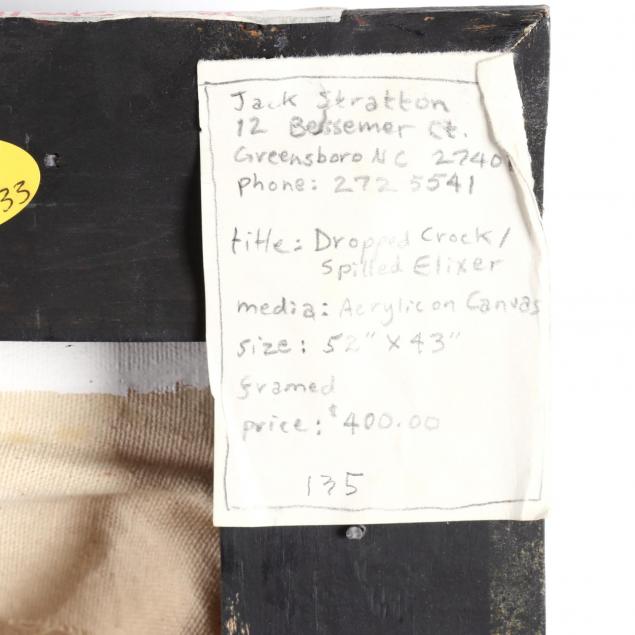 33
Jack Stratton
12 Bessemer Ct.
Greensboro NC 27401
phone: 272 5541
title: Dropped Crock/
Spilled Elixer
media: Acrylic on Canvas
size: 52" x 43"
framed
price: $400.00
135